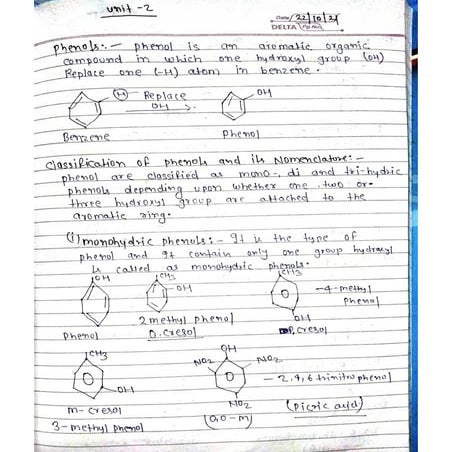 Unit-2
Date 22/10/21
DELTA Pg No
Phenols:- phenol is an aromatic organic
compound in which one hydroxyl group (OH)
Replace one (-H) atom in benzene.
H Replace
OH
OH
Benzene
Phenol
Classification of phenols and its Nomenclature:-
phenol are classified as mono-, di and tri-hydric
phenols depending upon whether one, two or
three hydroxyl group are attached to the
aromatic ring.
(i) monohydric phenols:- It is the type of
phenol and It contain only one group hydroxyl
is called as monohydric phenols.
OH
CH3
OH
CH3
-4-methyl
phenol
OH
Phenol
2 methyl phenol
O.cresol
P.cresol
CH3
OH
m-cresol
3-methyl phenol
OH
NO2
NO2
NO2
- 2,4,6 trinitrophenol
(picric acid)
(O,O-m)